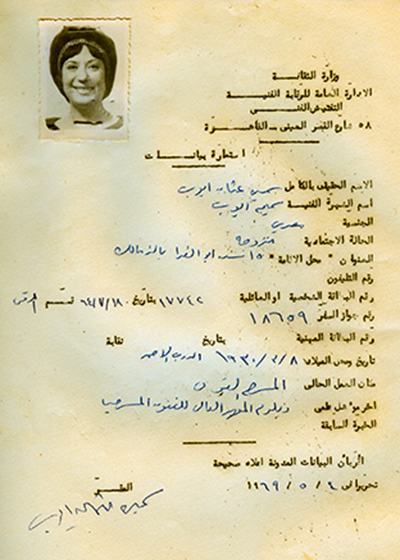 وزارة الثقافة
الادارة العامة للرقابة الفنية
التفتيش الفنى
٥٨ شارع القصر العينى - القاهرة
استمارة بيانات
الاسم الحقيقى بالكامل سميحه ايوب
اسم الشهرة الفنية سميحه ايوب
الجنسية مصرى
الحالة الاجتماعية متزوجه
العنوان " محل الاقامة " ١٥ ابو الفدا بالزمالك
رقم التليفون
رقم البطاقة الشخصية او العائلية ١٧٧٤٢ بتاريخ ٦٤/٧/١٨ قسم
رقم جواز السفر ١٨٦٥٩
رقم البطاقة المهنية بتاريخ نقابة
تاريخ ومحل الميلاد ٨/٣/١٩٣٠ الدرب الاحمر
مكان العمل الحالى المسرح القومى
آخر مؤهل علمى دبلوم المعهد العالى للفنون المسرحية
الخبرة السابقة
اقر بأن البيانات المدونة اعلاه صحيحة
تحريرا فى ٤ / ٥ / ١٩٦٩